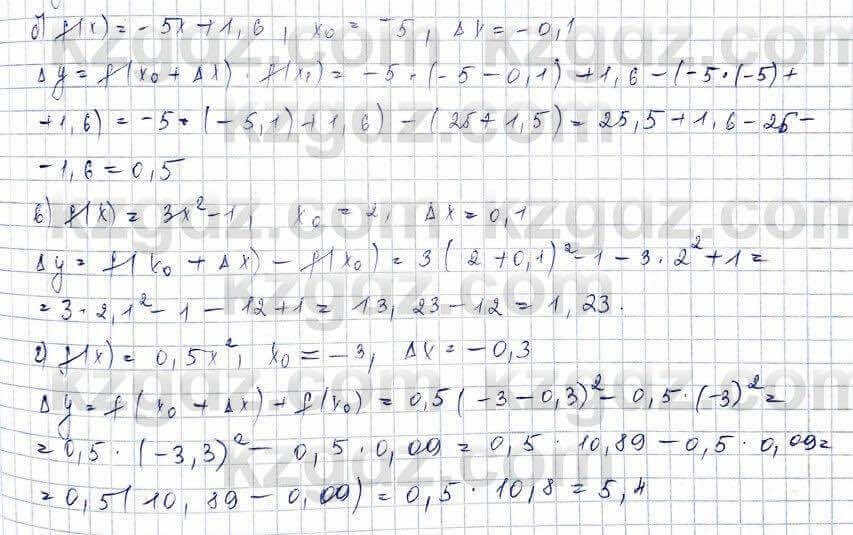 б) f(x) = - 5x + 1,6 , x₀ = -5, Δx = - 0,1
Δy = f(x₀ + Δx) - f(x₀) = -5 · (-5 - 0,1) + 1,6 - (-5 · (-5) +
+1,6) = -5 · (-5,1) + 1,6) - (25 + 1,5) = 25,5 + 1,6 - 25 -
-1,6 = 0,5
в) f(x) = 3x² - 1, x₀ = 2, Δx = 0,1
Δy = f(x₀ + Δx) - f(x₀) = 3(2 + 0,1)² - 1 - 3 · 2² + 1 =
= 3 · 2,1² - 1 - 12 + 1 = 13,23 - 12 = 1,23.
г) f(x) = 0,5x², x₀ = -3, Δx = -0,3
Δy = f(x₀ + Δx) + f(x₀) = 0,5(-3 - 0,3)² - 0,5 · (-3)² =
= 0,5 · (-3,3)² - 0,5 · 0,09 = 0,5 · 10,89 - 0,5 · 0,09 =
= 0,5(10,89 - 0,09) = 0,5 · 10,8 = 5,4
kzgdz.com